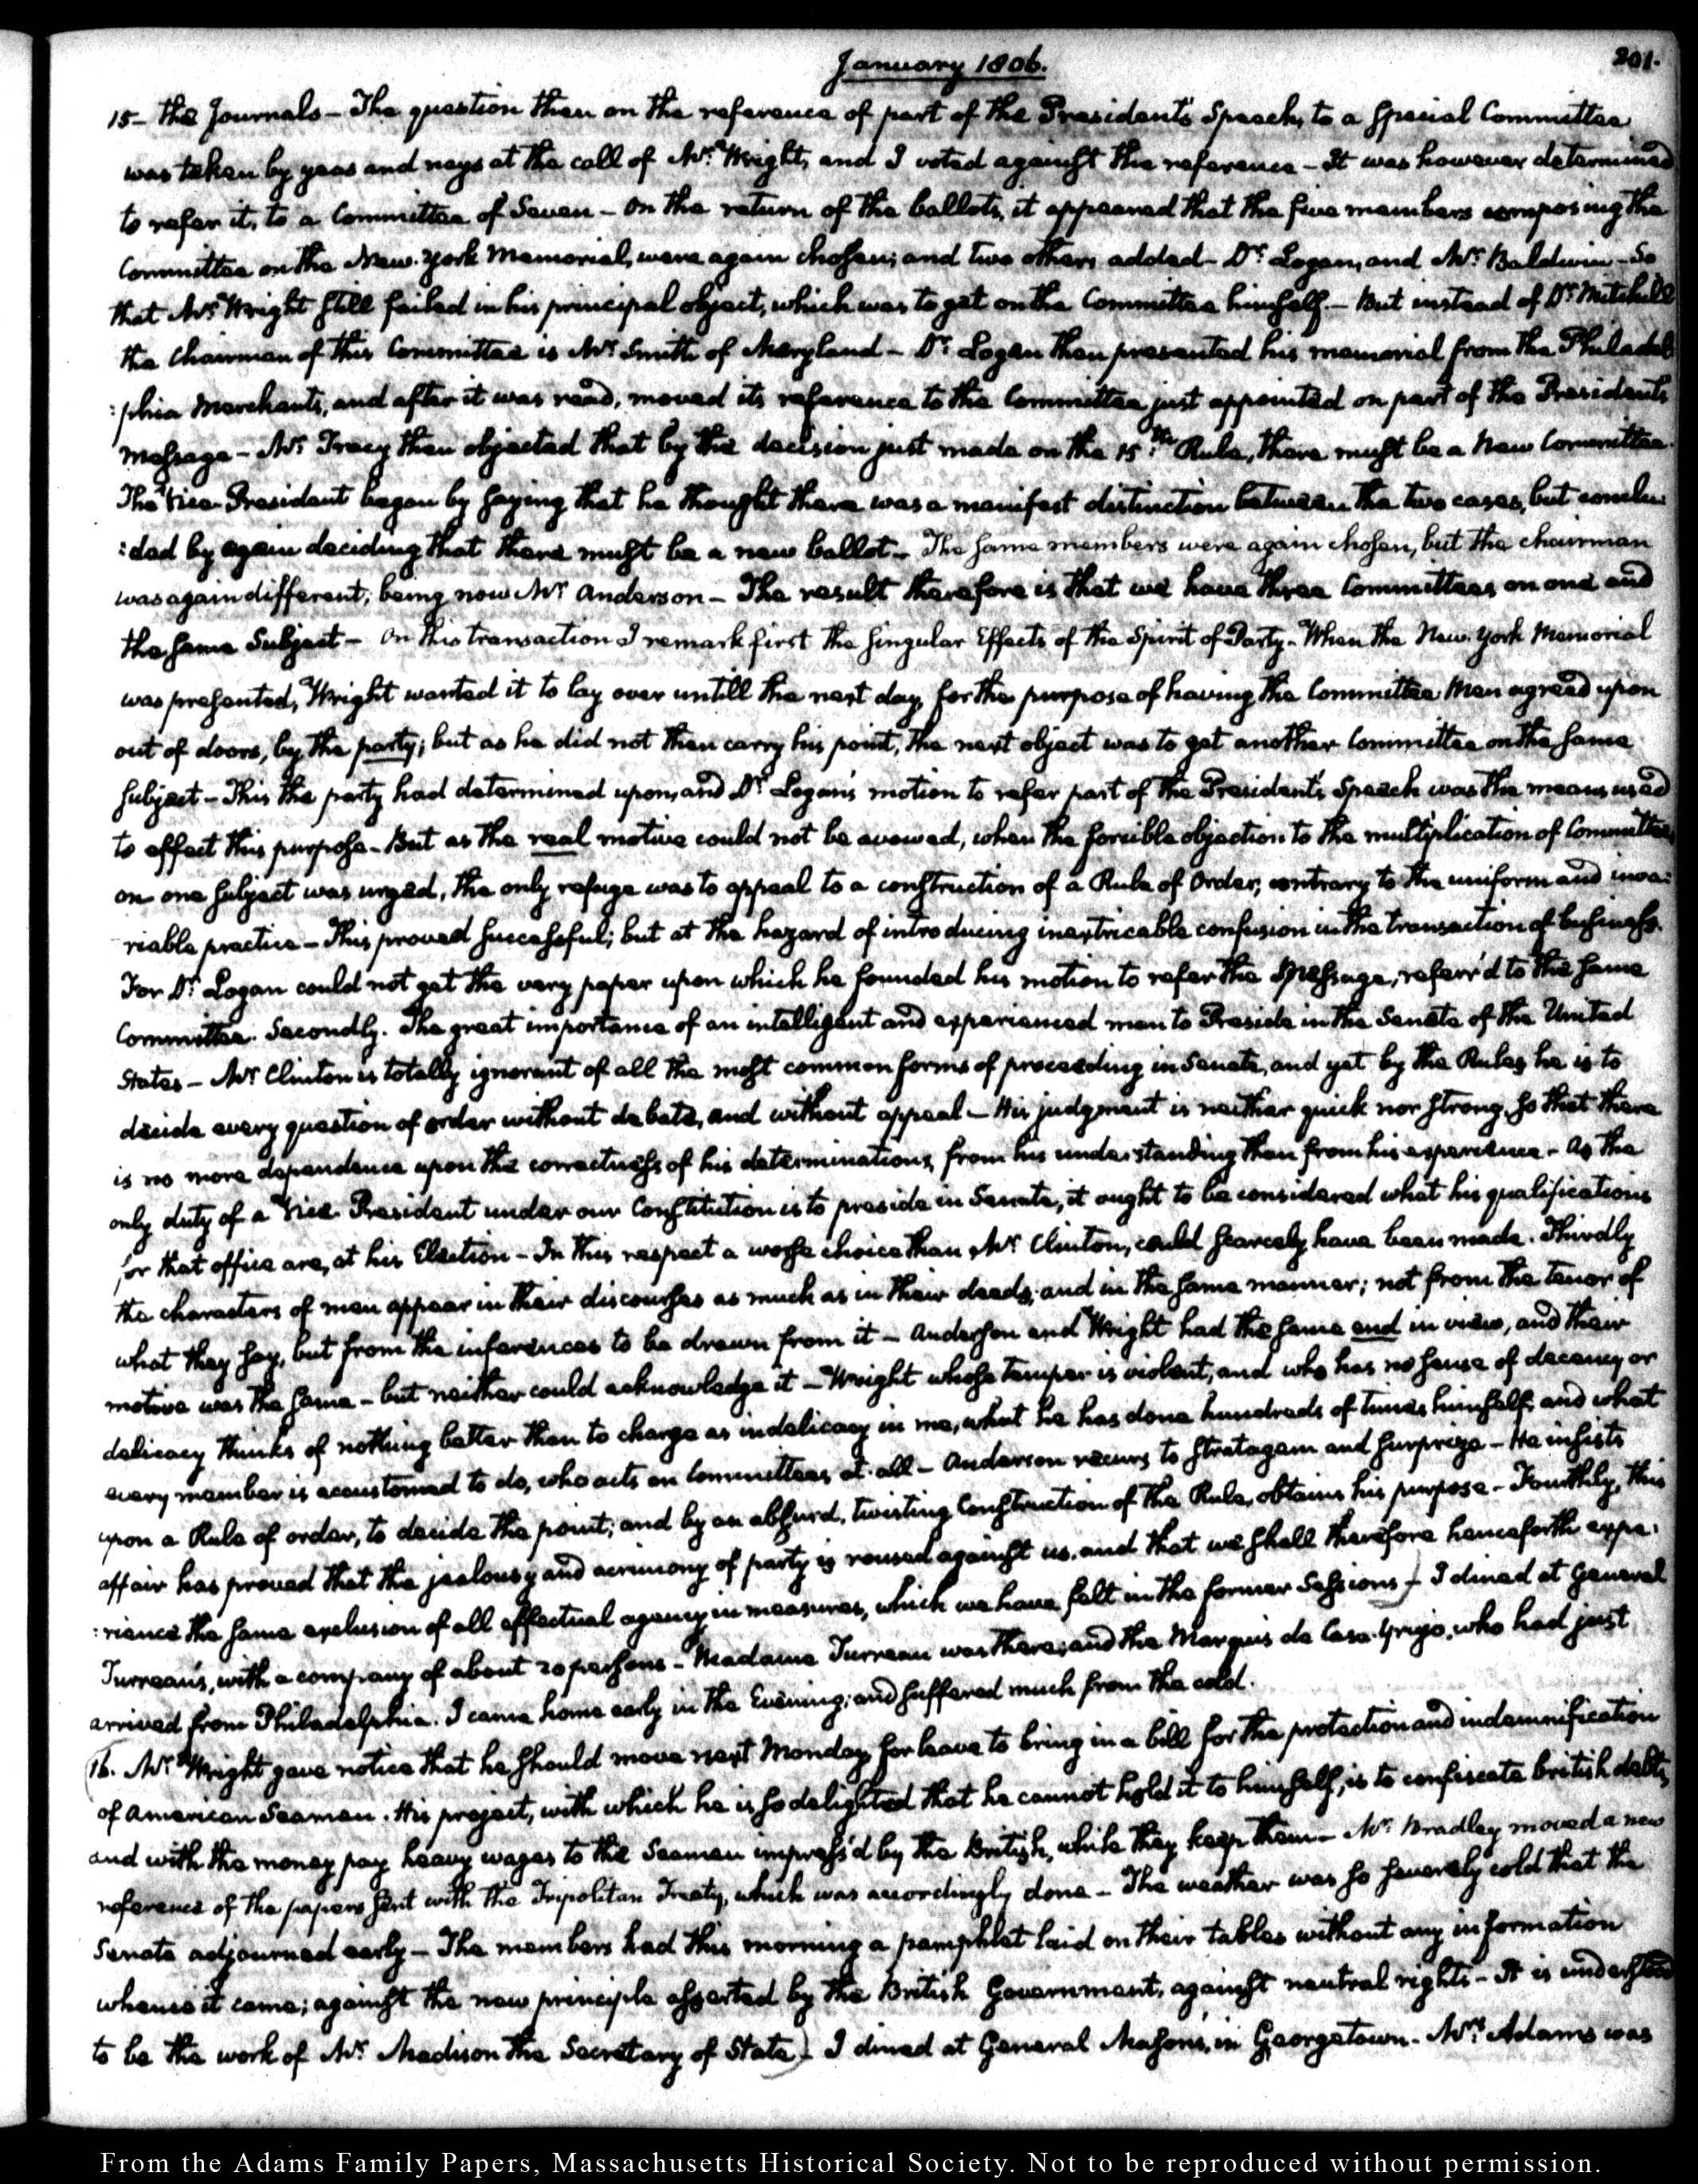 January 1806.
201.
15- the Journals - The question then on the reference of part of the President's Speech, to a special Committee
was taken by yeas and nays at the call of Mr: Wright, and I voted against the reference - It was however determined
to refer it, to a Committee of Seven - On the return of the ballots, it appeared that the five members composing the
Committee on the New-York Memorial, were again chosen; and two others added - Dr: Logan, and Mr: Baldwin - So
that Mr: Wright still failed in his principal object, which was to get on the Committee himself. - But instead of Dr: Mitchill
the Chairman of this Committee is Mr: Smith of Maryland - Dr: Logan then presented his memorial from the Philadel
:phia Merchants, and after it was read, moved its reference to the Committee just appointed on part of the Presidents
Message - Mr: Tracy then objected that by the decision just made on the 15th: Rule, there must be a New Committee.
The Vice-President began by saying that he thought there was a manifest distinction between the two cases, but conclu:
:ded by again deciding that there must be a new ballot - The same members were again chosen, but the chairman
was again different; being now Mr: Anderson - The result therefore is that we have three Committees on one and
the same Subject - On this transaction I remark first the singular Effects of the Spirit of Party - When the New-York Memorial
was presented, Wright wanted it to lay over untill the next day, for the purpose of having the Committee Men agreed upon
out of doors, by the party; but as he did not then carry his point, the next object was to get another Committee on the same
subject - This the party had determined upon, and Dr: Logan's motion to refer part of the President's Speech was the means used
to effect this purpose - But as the real motive could not be avowed, when the forcible objection to the multiplication of Committees
on one subject was urged, the only refuge was to appeal to a construction of a Rule of Order, contrary to the uniform and inva:
riable practice - This proved successful; but at the hazard of introducing inextricable confusion in the transaction of business.
For Dr: Logan could not get the very paper upon which he founded his motion to refer the Message, referr'd to the same
Committee. Secondly. The great importance of an intelligent and experienced man to Preside in the Senate of the United
States - Mr: Clinton is totally ignorant of all the most common forms of proceeding in Senate, and yet by the Rules he is to
decide every question of order without debate, and without appeal - His judgment is neither quick nor strong, so that there
is no more dependence upon the correctness of his determinations, from his understanding than from his experience - As the
only duty of a Vice-President under our Constitution is to preside in Senate, it ought to be considered what his qualifications
for that office are, at his Election - In this respect a worse choice than Mr: Clinton, could scarcely have been made. Thirdly
the characters of men appear in their discourses as much as in their deeds; and in the same manner; not from the tenor of
what they say, but from the inferences to be drawn from it - Anderson and Wright had the same end in view, and their
motive was the same - but neither could acknowledge it - Wright whose temper is violent, and who has no sense of decency or
delicacy thinks of nothing better than to charge as indelicacy in me, what he has done hundreds of times himself, and what
every member is accustomed to do, who acts on Committees at all - Anderson recurs to Stratagem and Surprize - He insists
upon a Rule of order, to decide the point; and by an absurd, twisting Construction of the Rule, obtains his purpose - Fourthly, this
affair has proved that the jealousy and acrimony of party is roused against us, and that we shall therefore henceforth expe:
:rience the same exclusion of all effectual agency in measures, which we have felt in the former Sessions) - I dined at General
Turreau's, with a company of about 20 persons - Madame Turreau was there; and the Marquis de Casa-Yrujo, who had just
arrived from Philadelphia. I came home early in the Evening; and suffered much from the cold.
(16. Mr: Wright gave notice that he should move next Monday for leave to bring in a bill for the protection and indemnification
of American Seamen. His project, with which he is so delighted that he cannot hold it to himself, is to confiscate british debts,
and with the money pay heavy wages to the Seamen impress'd by the British, while they keep them - Mr: Bradley moved a new
reference of the papers sent with the Tripolitan Treaty, which was accordingly done - The weather was so severely cold that the
Senate adjourned early - The members had this morning a pamphlet laid on their tables without any information
whence it came; against the new principle asserted by the British Government, against neutral rights - It is understood
to be the work of Mr: Madison the Secretary of State) - I dined at General Mason's, in Georgetown - Mrs: Adams was
From the Adams Family Papers, Massachusetts Historical Society. Not to be reproduced without permission.